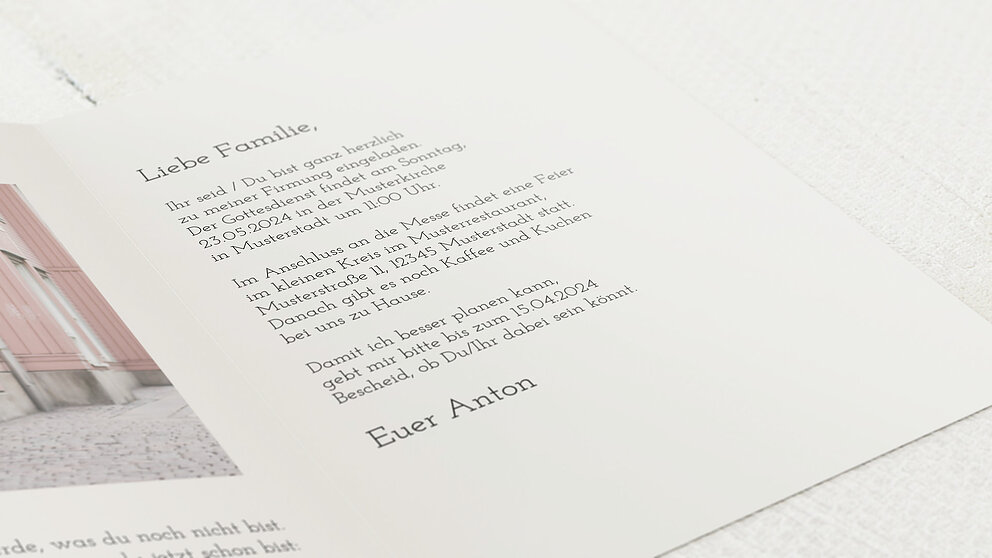 Liebe Familie,
Ihr seid / Du bist ganz herzlich
zu meiner Firmung eingeladen.
Der Gottesdienst findet am Sonntag,
23.05.2024 in der Musterkirche
in Musterstadt um 11:00 Uhr.
Im Anschluss an die Messe findet eine Feier
im kleinen Kreis im Musterrestaurant,
Musterstraße 11, 12345 Musterstadt statt.
Danach gibt es noch Kaffee und Kuchen
bei uns zu Hause.
Damit ich besser planen kann,
gebt mir bitte bis zum 15.04.2024
Bescheid, ob Du/Ihr dabei sein könnt.
Euer Anton
was du noch nicht bist.
jetzt schon bist: